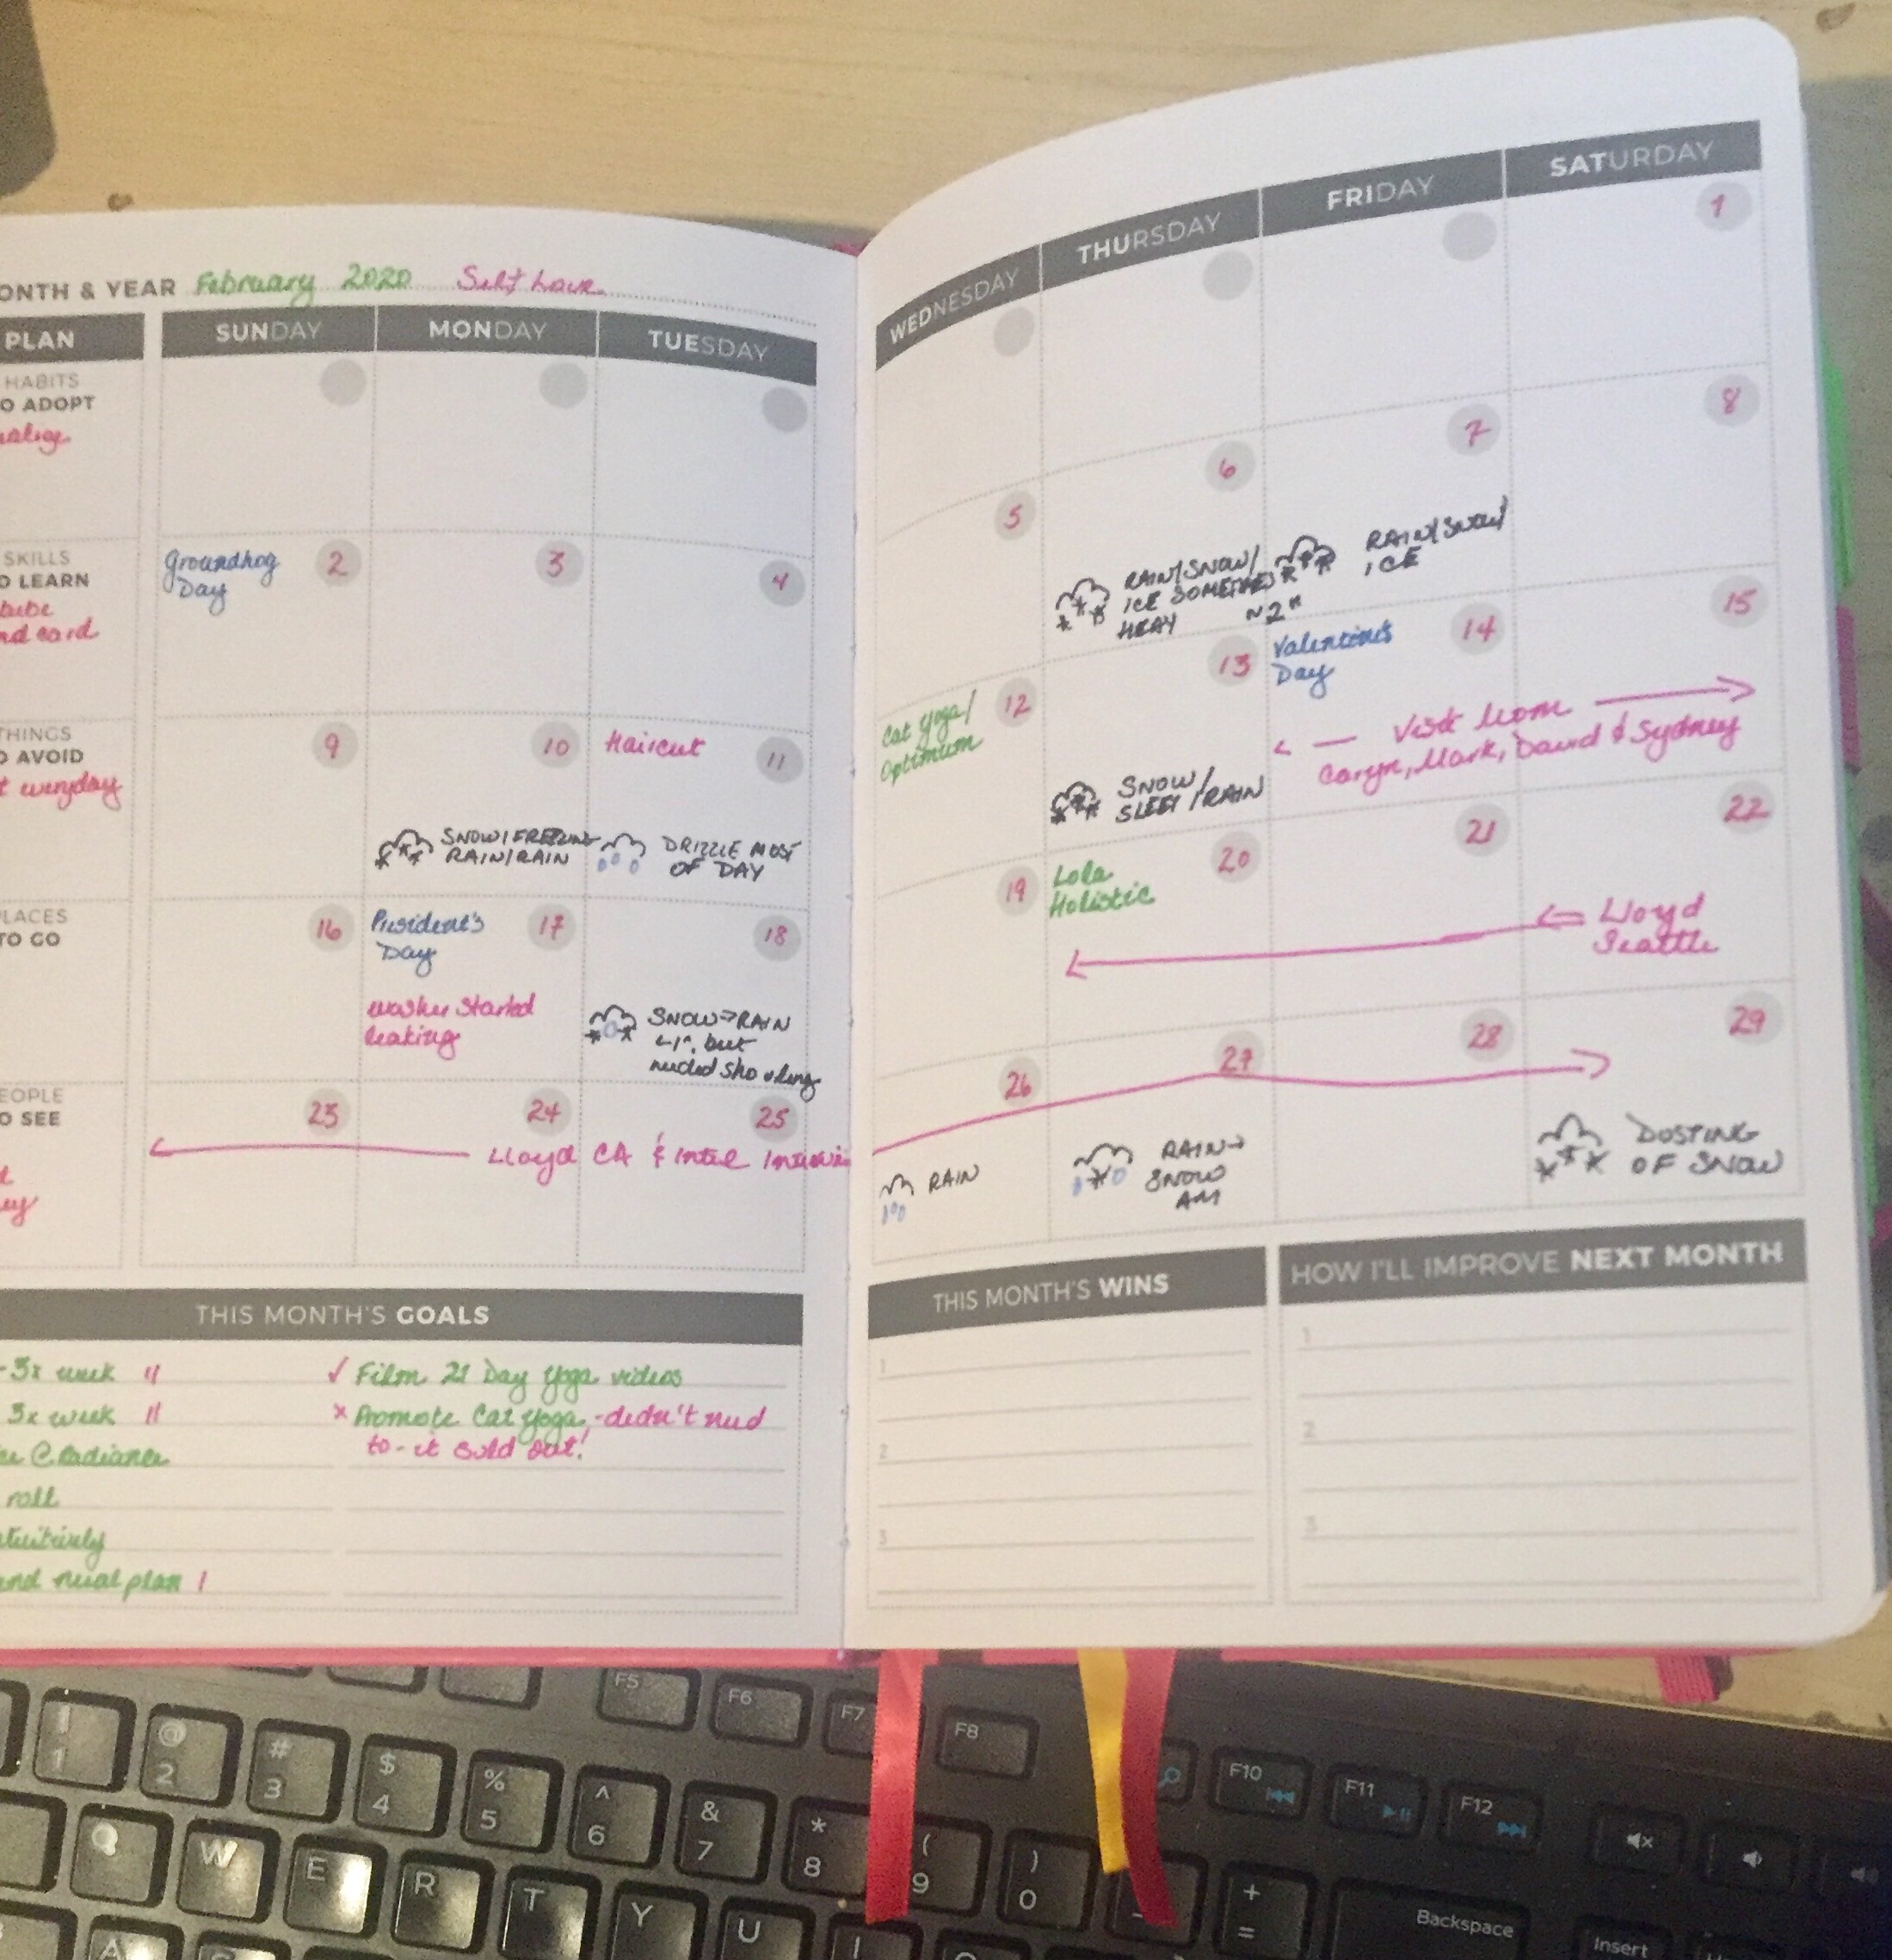 ONTH & YEAR February 2020 Self Love
PLAN
SUNDAY MONDAY TUESDAY
HABITS
O ADOPT
SKILLS
O LEARN
nd card
THINGS
O AVOID
t everyday
LACES
TO GO
EOPLE
O SEE
Groundhog
Day
2
3
4
9
10
SNOW/FREEZING
RAIN/RAIN
Haircut
11
DRIZZLE MOST
OF DAY
16
President's
Day
17
washer started
leaking
18
SNOW→RAIN
<1", but
needed shoveling
23
24
25
Lloyd CA & Intel Interview
THIS MONTH'S GOALS
3x week 11
3x week 11
@ Radiance
roll
tuitively
and meal plan 1
✓ Film 21 Day Yoga videos
x Promote Cat Yoga - didn't need
to - it sold out!
WEDNESDAY THURSDAY FRIDAY SATURDAY
1
5
6
RAIN/SNOW/
ICE SOMETIMES
HEAVY ~2"
7
RAIN/SNOW/
ICE
8
Cat Yoga/
Optimum
12
13
SNOW/
SLEET/RAIN
Valentine's
Day
14
15
← — Visit Mom →
Caryn, Mark, David & Sydney
19
Lola
Holistic
20
21
22
← Lloyd
Seattle
26
RAIN
27
RAIN→
SNOW
AM
28
29
DUSTING
OF SNOW
THIS MONTH'S WINS
1
2
3
HOW I'LL IMPROVE NEXT MONTH
1
2
3
F5
F6
F7
F8
F10
F11
F12
! 1
@ 2
# 3
$ 4
% 5
^ 6
& 7
* 8
( 9
) 0
-
+ =
Backspace
Insert
Q W E R T Y U I
A